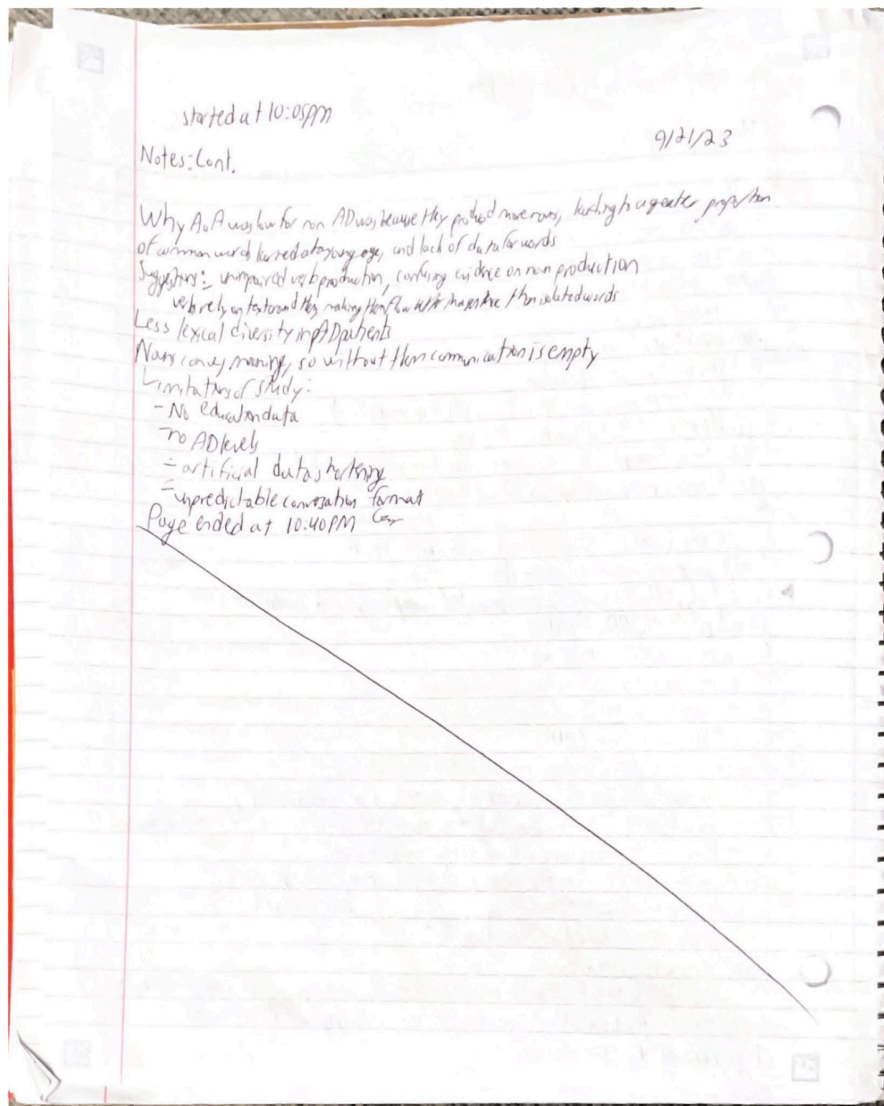 started at 10:05PM
9/21/23
Notes: Cont.
Why AoA was low for non AD was because they more nouns, leading to a greater proportion
of common words learned at a young age, and lack of data for words
Suggestions: unimpaired verb production, confusing evidence on noun production
verbs rely on making them flow than isolated words
Less lexical diversity in AD patients
Nouns convey meaning, so without them communication is empty
Limitations of study:
- No education data
- no AD levels
- artificial data shortening
- unpredictable conversation format
Page ended at 10:40PM